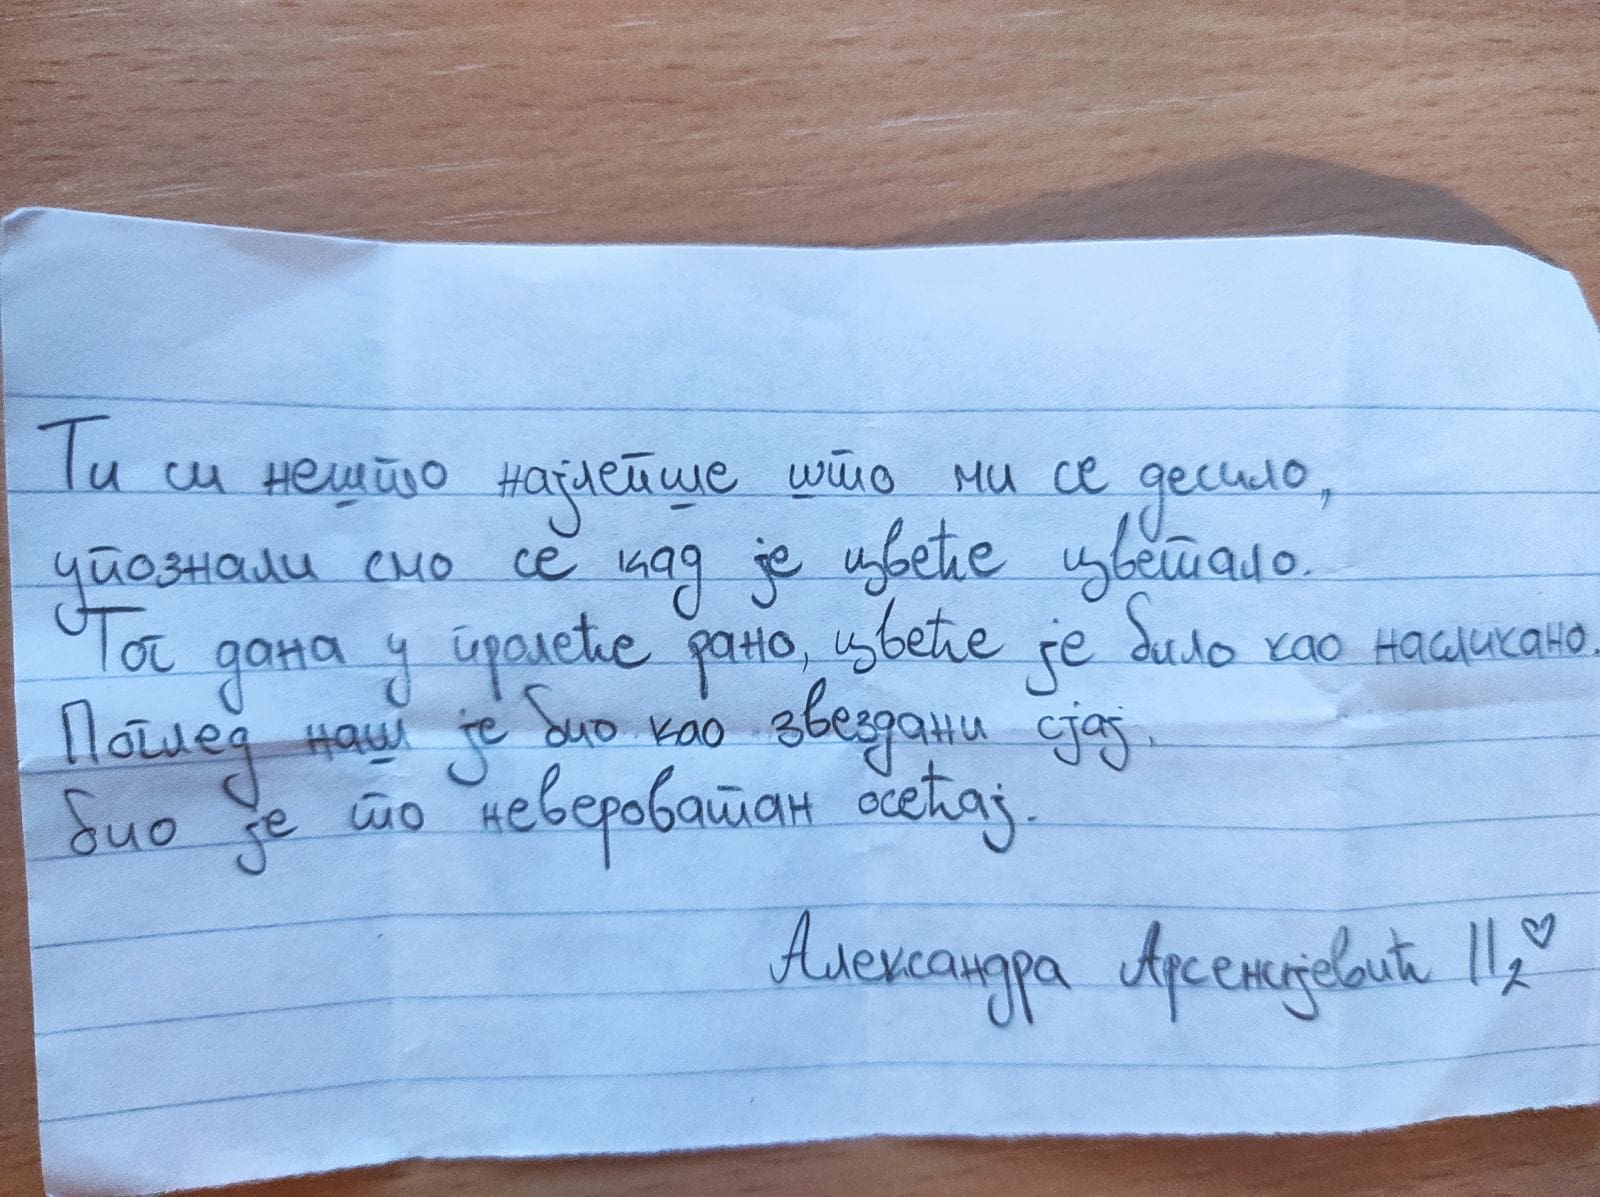 Ти си нешто најлепше што ми се десило,
упознали смо се кад је цвеће цветало.
Тог дана у пролеће рано, цвеће је било као насликано.
Поглед наш је био као звездани сјај,
био је то невероватан осећај.
Александра Арсенијевић II2♡